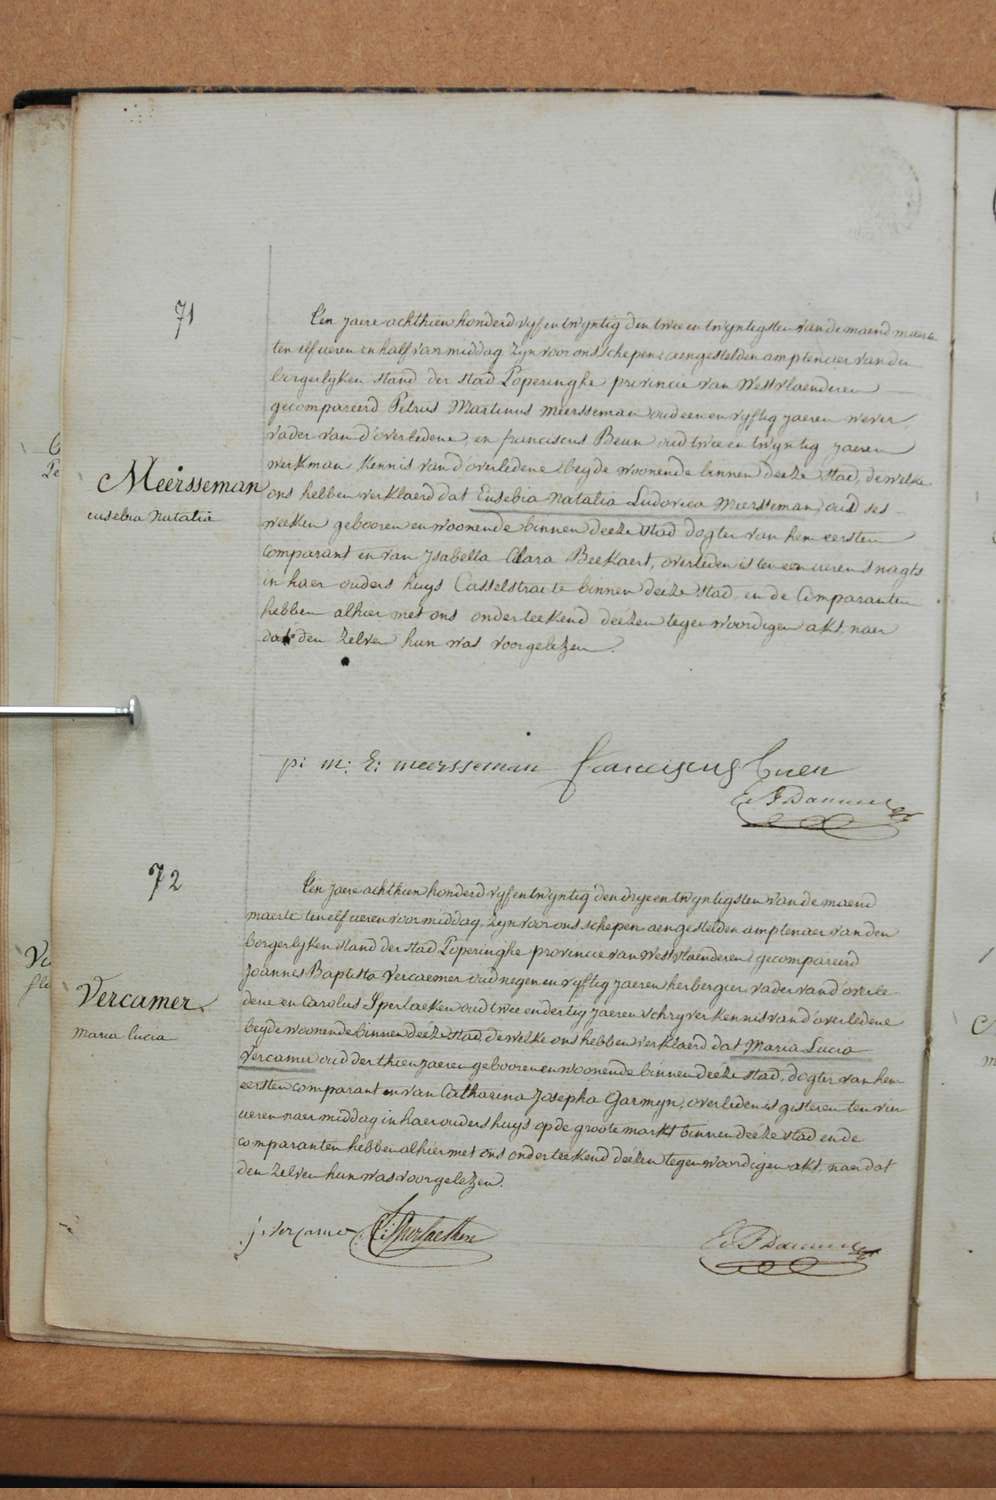 71
Een jaere achthien honderd vyf en twyntig den twee en twyntigsten van de maend maerte
ten elf ueren en half van middag, zyn voor ons schepene aengestelden amptenaer van den
borgerlyken stand der stad Poperinghe provincie van Westvlaenderen
gecompareerd Petrus Martinus Meersseman oud een en vyftig jaeren wever,
vader van d'overledene, en franciscus Beun oud twee en twyntig jaeren
werkman kennis van d'overledene beyde woonende binnen deeze stad, de welke
Meersseman
ons hebben verklaerd dat Eusebia Natalia Ludovica Meersseman, oud ses
eusebia Natalia
weeken gebooren en woonende binnen deeze stad dogter van hem eersten
comparant en van Ysabella Clara Beekaert, overleden is ten een ueren s nagts
in haer ouders huys Casselstraete binnen deeze stad, en de Comparanten
hebben alhier met ons onderteekend deezen tegenwoordigen akt, naer
dat den zelven hun was voorgelezen.
p: m: E: meersseman franciscus
72
Een jaere achthien honderd vyf en twyntig den drye en twyntigsten van de maend
maerte ten elf ueren voormiddag, zyn voor ons schepen aengestelden amptenaer van den
borgerlyken stand der stad Poperinghe provincie van Westvlaenderen gecompareerd
Joannes Baptista Vercaemer oud negen en vyftig jaeren herbergier, vader van d'overle
Vercamer
dene en Carolus Iperlaeken oud twee en dertig jaeren schryver kennis van d'overledene
maria lucia
beyde woonende binnen deeze stad, de welke ons hebben verklaerd dat Maria Lucia
Vercamer oud derthien jaeren gebooren en woonende binnen deeze stad, dogter van hem
eersten comparant en van Catharina Josepha Garmyn, overleden is gisteren ten vier
ueren naer middag in haer ouders huys op de groote markt binnen deeze stad en de
comparanten hebben alhier met ons onderteekend deezen tegenwoordigen akt, naer dat
den zelven hun was voorgelezen.